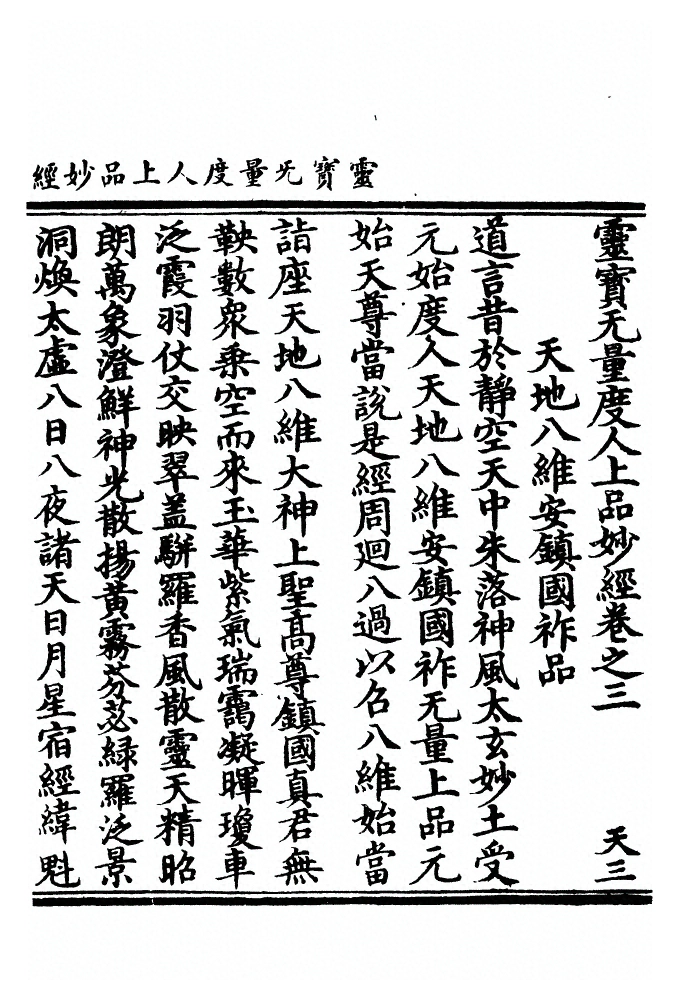 靈寳无量度人上品妙經
靈寳无量度人上品妙經卷之三 天三
天地八維安鎮國祚品
道言昔於靜空天中朱落神風太玄妙土受
元始度人天地八維安鎮國祚无量上品元
始天尊當說是經周迴八過以召八維始當
詣座天地八維大神上聖高尊鎮國真君無
鞅數衆乗空而來玉華紫氣瑞靄凝暉瓊車
泛霞羽仗交映翠盖駢羅香風散靈天精昭
朗萬象澄鮮神光散揚黃霧芬苾緑羅泛景
洞煥太虛八日八夜諸天日月星宿經緯魁